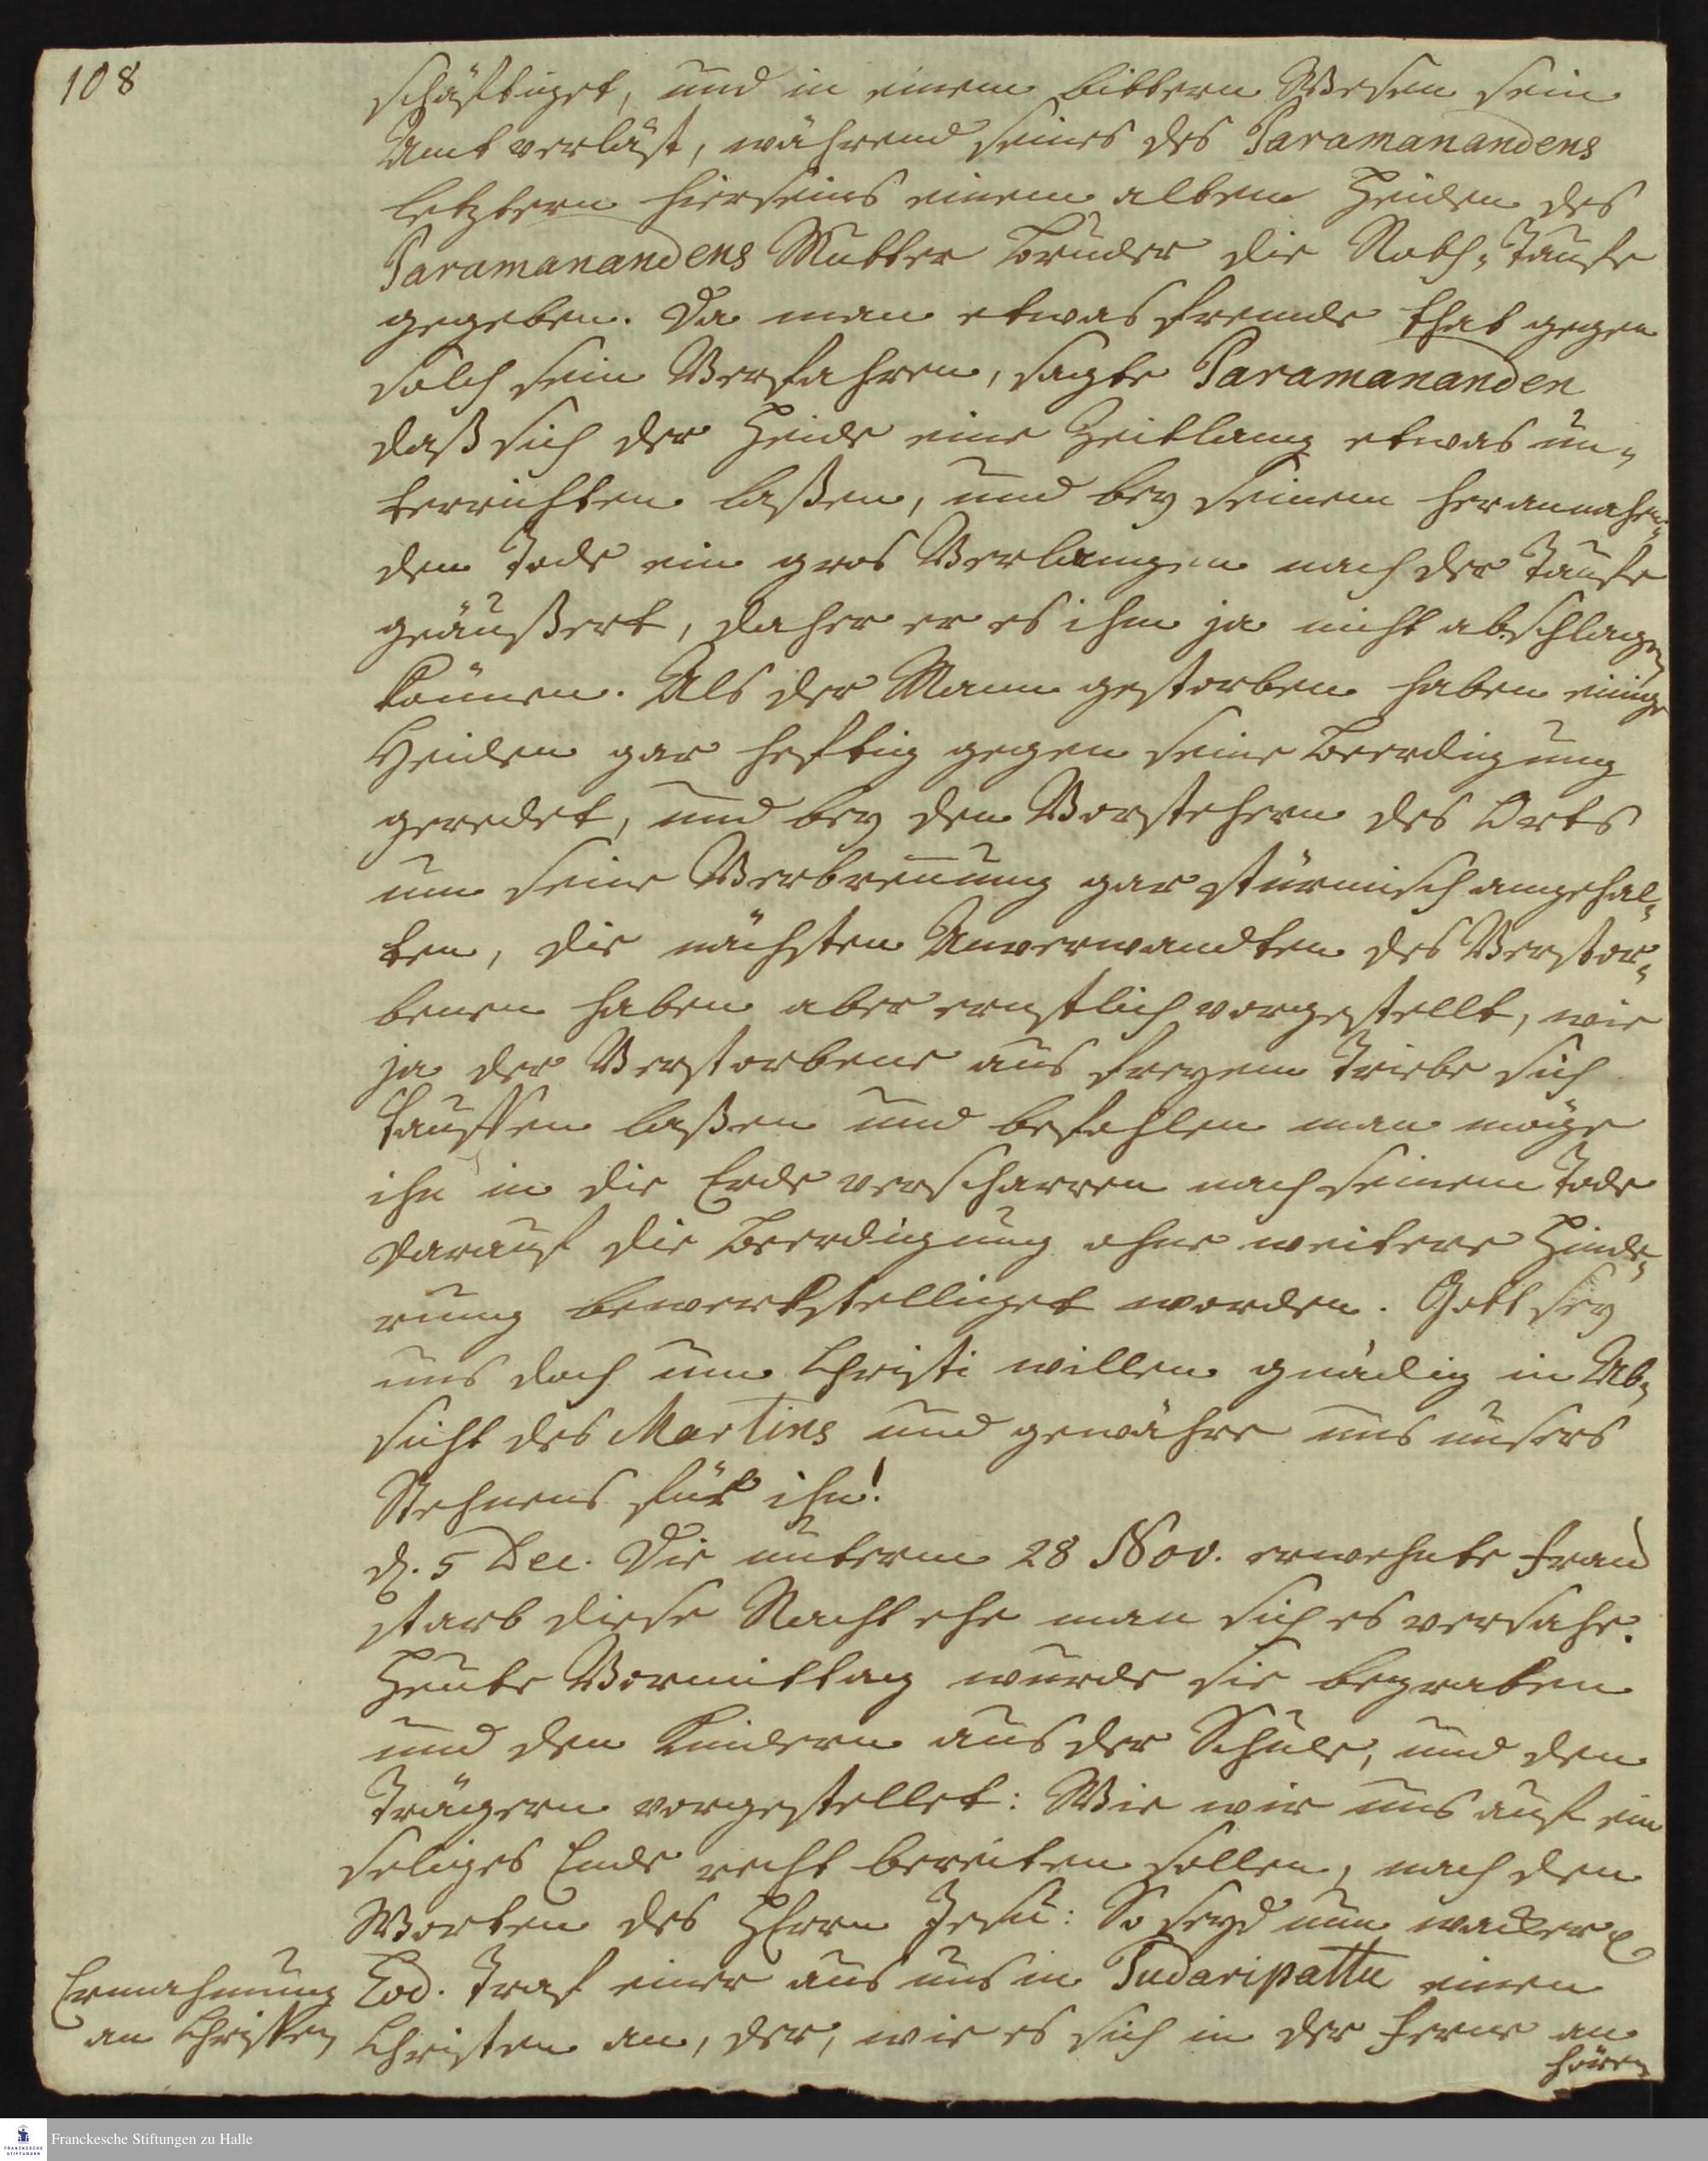 108
schäfftiget, und in einem bittern Wesen sein
Amt verläst, während seines des Paramanandens
letztern Hierseins einem alten Heiden des
Paramanandens Mutter Bruder die Noth-Taufe
gegeben. Da man etwas fremde that gegen
solch sein Verfahren, sagte Paramananden
daß sich der Heide eine Zeitlang etwas un-
terrichten laßen, und bey seinem herannahen-
den Tode ein gros Verlangen nach der Taufe
geäußert, daher er es ihm ja nicht abschlagen
können. Als der Mann gestorben haben einige
Heiden gar heftig gegen seine Beerdigung
geredet, und bey den Vorstehern des Orts
um seine Verbrennung gar stürmisch angehal-
ten, die nächsten Anverwandten des Verstor-
benen haben aber ernstlich vorgestellt, wie
ja der Verstorbene aus freyem Triebe sich
tauffen laßen und befohlen man möge
ihn in die Erde verscharren nach seinem Tode
darauf die Beerdigung ohne weitere Hinde-
rung bewerkstelliget worden. Gott sey
uns doch um Christi willen gnädig in Ab-
sicht des Martins und gewähre uns unsers
Flehnens für ihn!
d. 5 Dec. Die unterm 28 Nov. erwehnte Frau
starb diese Nacht ehe man sich es versahe.
Heute Vormittag wurde sie begraben
und den Kindern aus der Schule, und den
Trägern vorgestellet: Wie wir uns auf ein
seliges Ende recht bereiten sollen, nach den
Worten des HErrn Jesu: So seyd nun wacker
Eod. Traf einer aus uns in Pudaripattu einen
Christen an, der, wie es sich in der Ferne an
hören
Ermahnung
an Christen
Franckesche Stiftungen zu Halle